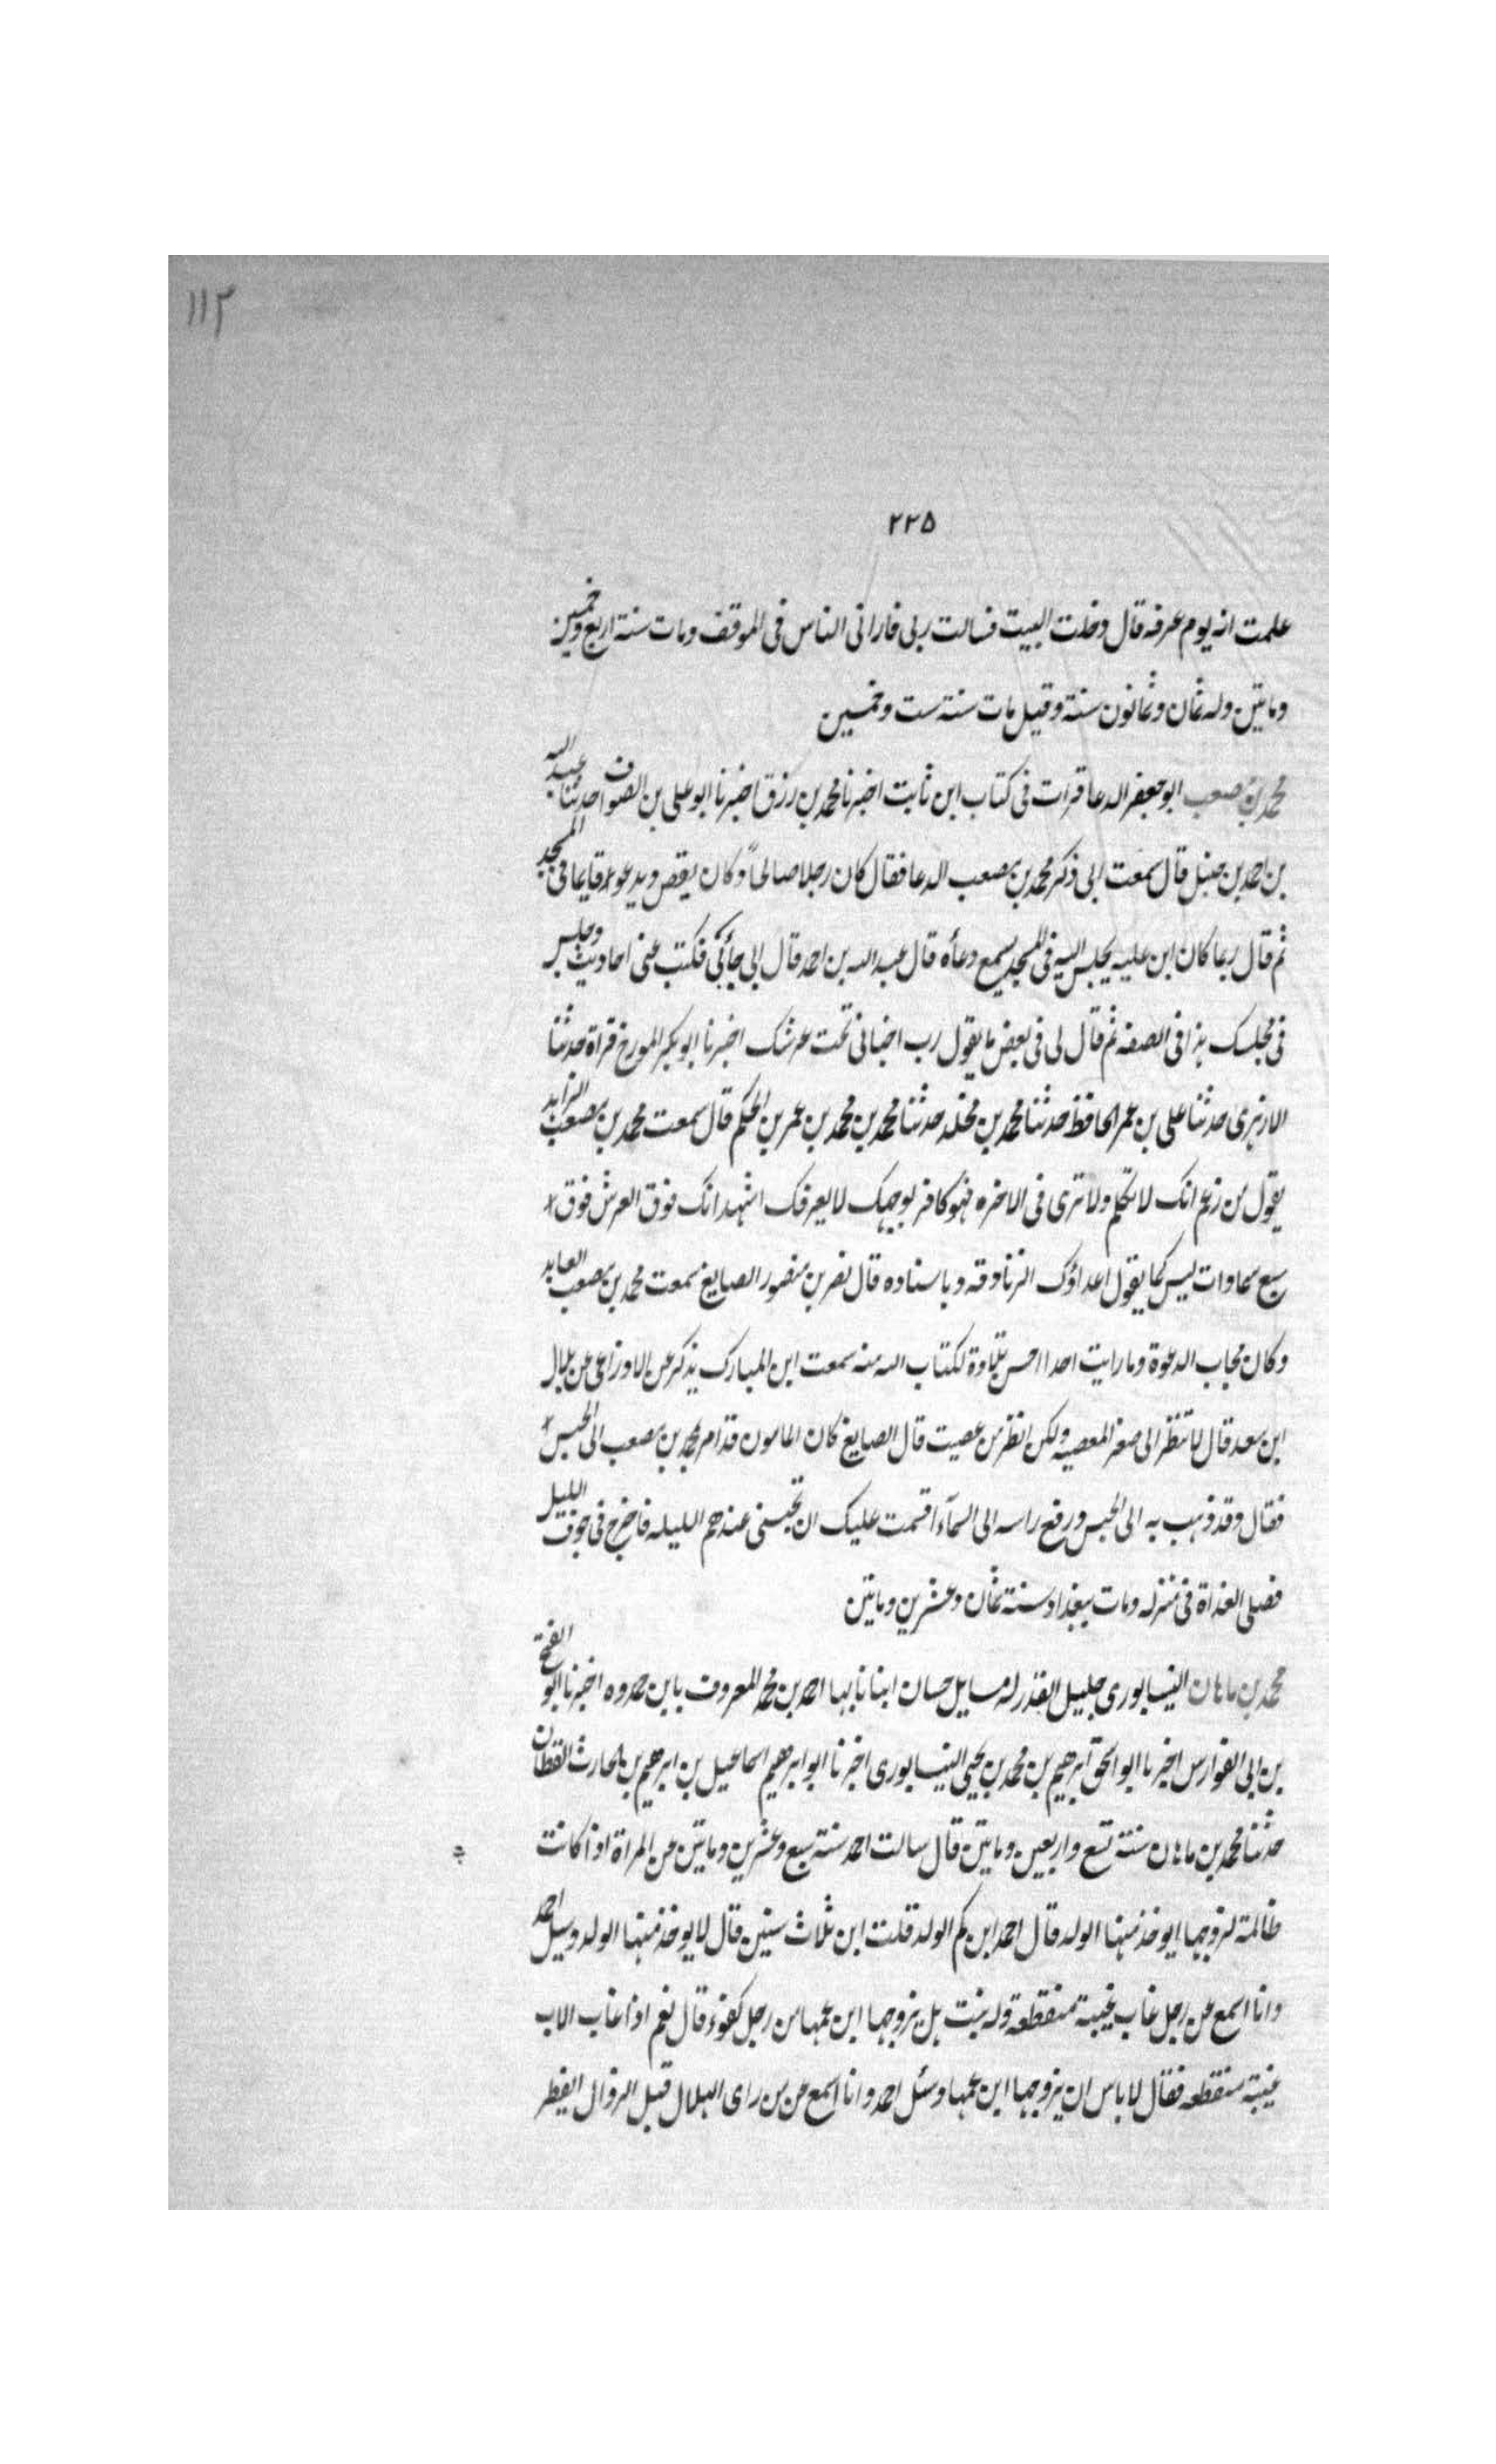 ١١٣
٢٢٥
علمت انه يوم عرفه قال دخلت البيت فسالت ربى فارانى الناس فى الموقف ومات سنة اربع وخمسين
وماتين وله ثمان وثمانون سنة وقيل مات سنة ست وخمسين
محمد بن مصعب ابو جعفر الدعا قرات فى كتاب ابن ثابت اخبرنا محمد بن رزق اخبرنا ابو على بن الصواف حدثنا عبد الله
بن احمد بن حنبل قال سمعت ابى ذكر محمد بن مصعب الدعا فقال كان رجلا صالحاً وكان يقص ويدعو قايما فى المسجد
ثم قال ربما كان ابن عليه يجلس اليه فى المسجد يسمع دعأه قال عبد الله بن احمد قال ابى جأنى فكتب عنى احاديث وجلس
فى مجلسك هذا فى الصفه ثم قال لى فى بعض ما يقول رب اخبانى تحت عرشك اخبرنا ابو بكر المورخ قراة حدثنا
الازهرى حدثنا على بن عمر الحافظ حدثنا محمد بن مخلد حدثنا محمد بن محمد بن عمر بن الحكم قال سمعت محمد بن مصعب الزاهد
يقول من زعم انك لا تتكلم ولا ترى فى الاخره فهو كافر بوجهك لا يعرفك اشهد انك فوق العرش فوق
سبع سماوات ليس كما يقول اعداؤك الزنادقه وباسناده قال نصر بن منصور الصايغ سمعت محمد بن مصعب العابد
وكان مجاب الدعوة وما رايت احدا احسن تلاوة لكتاب الله منه سمعت ابن المبارك يذكر عن الاوزاعى عن بلال
ابن سعد قال لا تنظر الى صغر المعصيه ولكن انظر من عصيت قال الصايغ كان المامون قد امر بمحمد بن مصعب الى الحبس
فقال وقد ذهب به الى الحبس ورفع راسه الى السمآء اقسمت عليك ان تحبسنى عندهم الليله فاخرج فى جوف الليل
فصلى الغداة فى منزله ومات ببغداد سنة ثمان وعشرين وماتين
محمد بن ماهان النيسابورى جليل القدر له مسايل حسان انبانا بها احمد بن محمد المعروف بابن حمدوه اخبرنا ابو الفتح
بن ابى الفوارس اخبرنا ابو اسحق ابرهيم بن محمد بن يحيى النيسابورى اخبرنا ابو ابرهيم اسماعيل بن ابرهيم بن الحارث القطان
حدثنا محمد بن ماهان سنة تسع واربعين وماتين قال سالت احمد سنة سبع وعشرين وماتين عن المراة اذا كانت
ظالمة لزوجها ايوخذ منها الولد قال احمد ابن كم الولد قلت ابن ثلاث سنين قال لا يوخذ منها الولد وسيل احمد
وانا اسمع عن رجل غاب غيبة منقطعه وله بنت هل يزوجها ابن عمها من رجل كفوء قال نعم اذا غاب الاب
غيبة منقطعه فقال لا باس ان يزوجها ابن عمها وسئل احمد وانا اسمع عن من راى الهلال قبل الزوال ايفطر